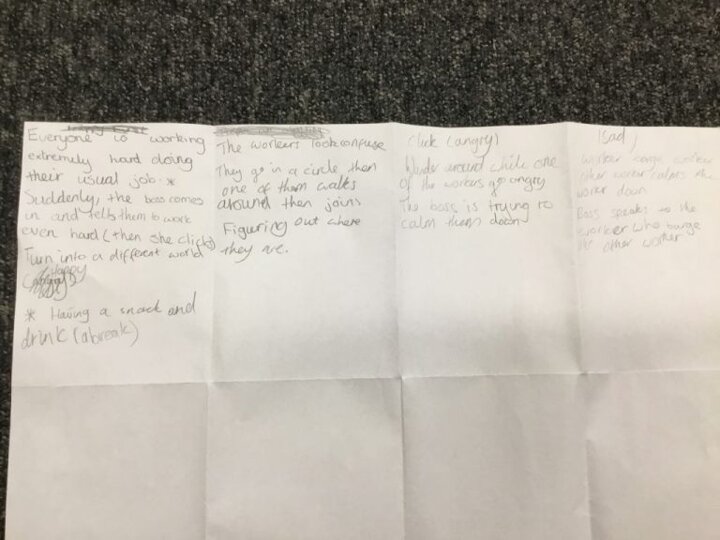 Everyone is working
extremly hard doing
their usual job *
Suddenly, the boss comes
in and tells them to work
even hard (then she clicks)
Turn into a different world
Happy
* Having a snack and
drink (abreak)
The workers look confuse
They go in a circle then
one of them walks
around then joins
Figuring out where
they are.
Click (angry)
Wander around while one
of the workers go angry
The boss is trying to
calm them down
(Sad)
worker barge worker
other worer calms the
worer down
Boss speaks to the
worker who barge
the other worker